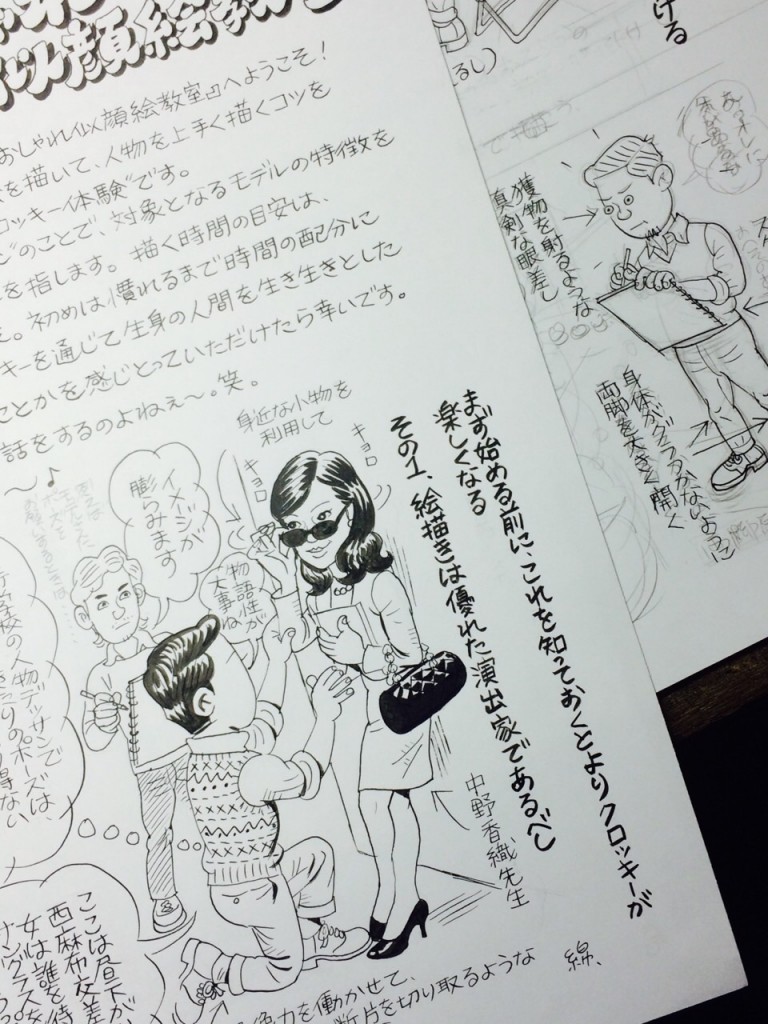 似顔絵教室
おしゃれ似顔絵教室』へようこそ!
を描いて、人物を上手く描くコツを
ロッキー体験"です。
のことで、対象となるモデルの特徴を
を指します。描く時間の目安は、
。初めは慣れるまで時間の配分に
キーを通じて生身の人間を生き生きとした
ことかを感じとっていただけたら幸いです。
話をするのよねぇ〜。笑。
〜♪
まず始める前に、これを知っておくとよりクロッキーが
楽しくなる
その1、絵描きは優れた演出家であるべし
身近な小物を
利用して
キョロ
キョロ
イメージが
膨らみます
物語性が
大事ね
中野香織先生
人物デッサンで
のポーズは、
得ない
ここは昼下が
西麻布交差
女は誰を待
サングラスを
像力を働かせて、
断片を切り取るような
綿、
ける
るし)
で描
獲物を射るような
真剣な眼差し
身体がグラつかないように
両脚を大きく開く